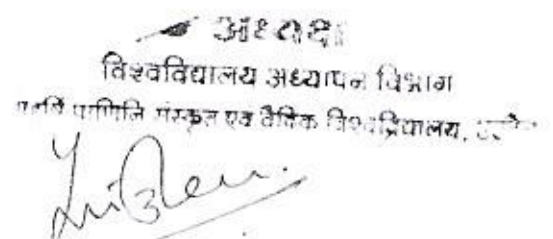 अध्यक्ष
विश्वविद्यालय अध्यापन विभाग
महर्षि पाणिनि संस्कृत एवं वैदिक विश्वविद्यालय, उज्जैन